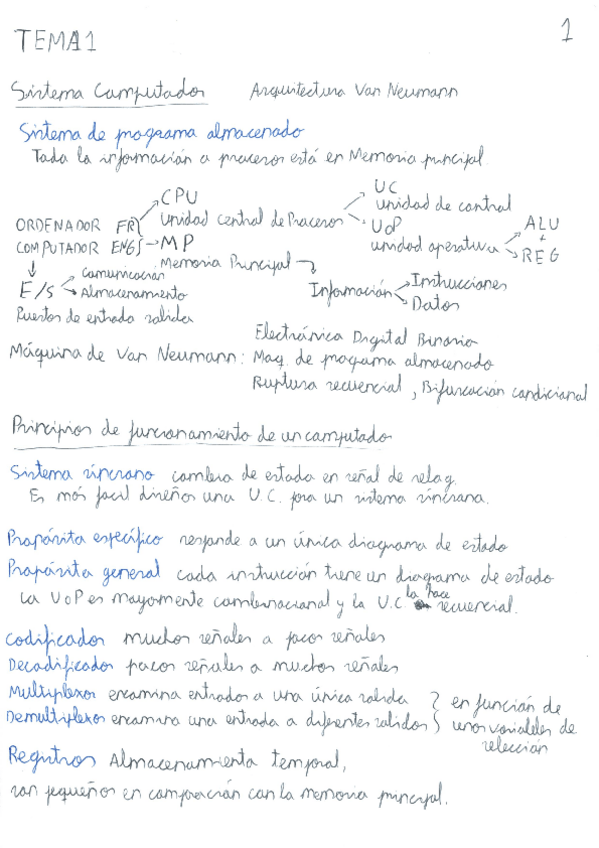 TEMA1
1
Sistema Computador Arquitectura Von Neumann
Sistema de programa almacenado
Toda la información a procesos está en Memoria principal
CPU
Unidad Central de Procesos
UC
unidad de control
UOP
unidad operativa
ALU
+
REG
ORDENADOR FR
COMPUTADOR ENG
MP
Memoria Principal
Información
Instrucciones
Datos
E/S
Comunicación
Almacenamiento
Puertos de entrada salida
Electrónica Digital Binario
Máquina de Von Neumann: Maq. de programa almacenado
Ruptura secuencial, Bifurcación condicional
Principios de funcionamiento de un computador
Sistema síncrono cambia de estado en señal de reloj.
Es más facil diseños una U.C. para un sistema síncrono.
Propósito específico responde a un único diagrama de estado
Propósito general cada instrucción tiene un diagrama de estado
La UOP es mayormente combinacional y la U.C. la hace secuencial.
Codificador muchos señales a pocos señales
Decodificador pocos señales a muchos señales
Multiplexor encamina entrados a una única salida
Demultiplexor encamina una entrada a diferentes salidos
en función de
unos variables de
selección
Registros Almacenamiento temporal,
son pequeños en comparación con la memoria principal.